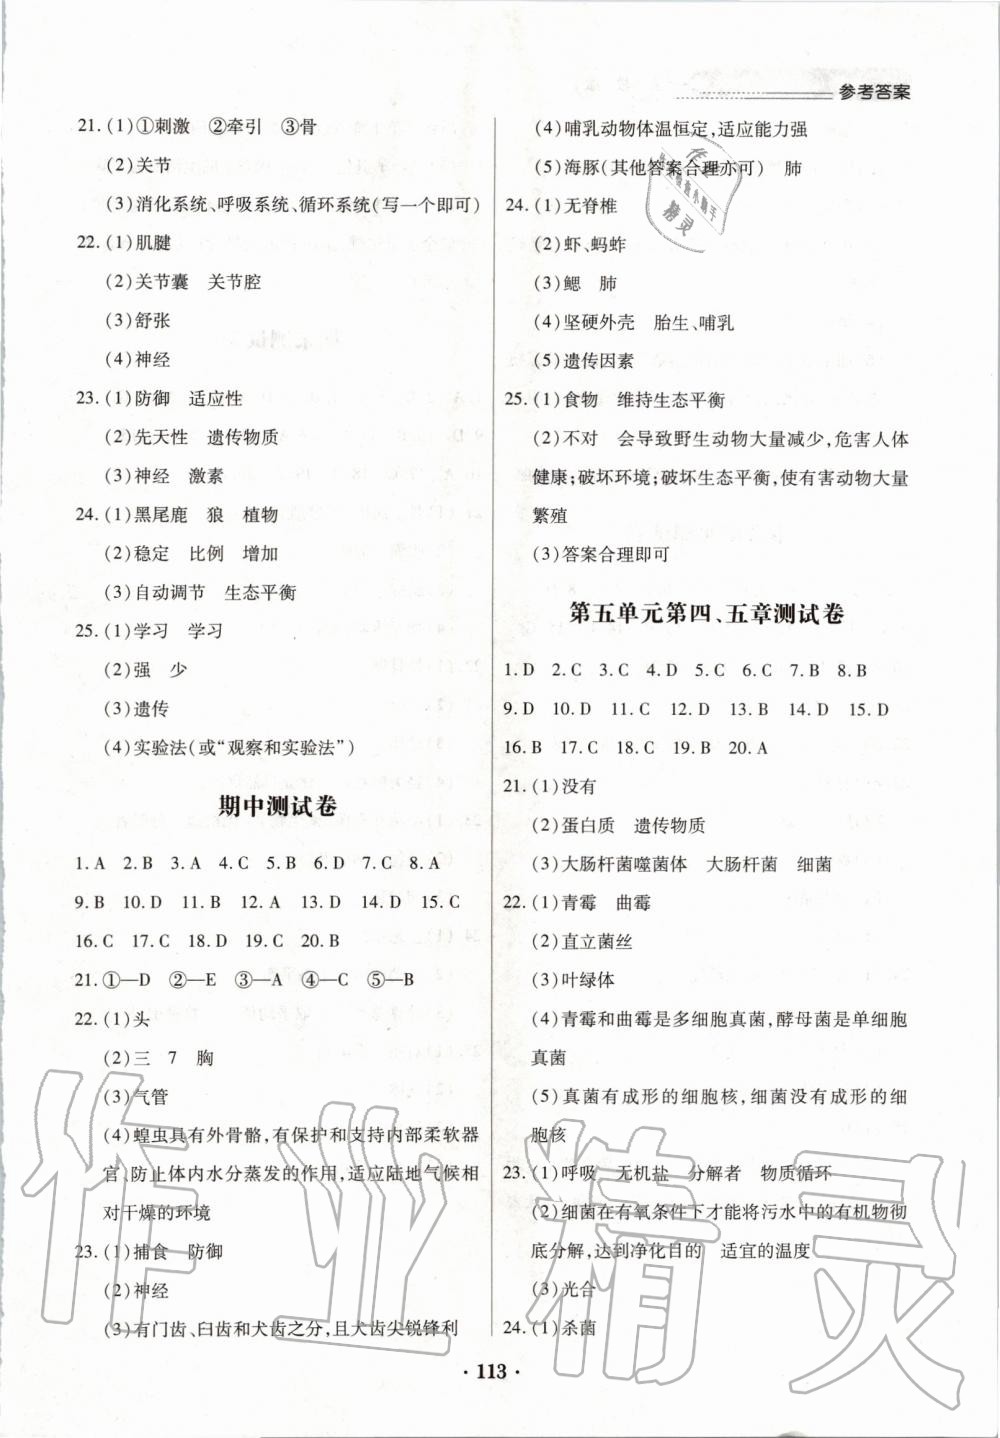 参考答案
21. (1)①刺激　②牵引　③骨
(2)关节
(3)消化系统、呼吸系统、循环系统(写一个即可)
22. (1)肌腱
(2)关节囊　关节腔
(3)舒张
(4)神经
23. (1)防御　适应性
(2)先天性　遗传物质
(3)神经　激素
24. (1)黑尾鹿　狼　植物
(2)稳定　比例　增加
(3)自动调节　生态平衡
25. (1)学习　学习
(2)强　少
(3)遗传
(4)实验法(或“观察和实验法”)
期中测试卷
1. A　2. B　3. A　4. C　5. B　6. D　7. C　8. A
9. B　10. D　11. B　12. A　13. D　14. D　15. C
16. C　17. C　18. D　19. C　20. B
21. ①—D　②—E　③—A　④—C　⑤—B
22. (1)头
(2)三　7　胸
(3)气管
(4)蝗虫具有外骨骼,有保护和支持内部柔软器
官、防止体内水分蒸发的作用,适应陆地气候相
对干燥的环境
23. (1)捕食　防御
(2)神经
(3)有门齿、臼齿和犬齿之分,且犬齿尖锐锋利
(4)哺乳动物体温恒定,适应能力强
(5)海豚(其他答案合理亦可)　肺
24. (1)无脊椎
(2)虾、蚂蚱
(3)鳃　肺
(4)坚硬外壳　胎生、哺乳
(5)遗传因素
25. (1)食物　维持生态平衡
(2)不对　会导致野生动物大量减少,危害人体
健康;破坏环境;破坏生态平衡,使有害动物大量
繁殖
(3)答案合理即可
第五单元第四、五章测试卷
1. D　2. C　3. C　4. D　5. C　6. C　7. B　8. B
9. D　10. D　11. C　12. D　13. B　14. D　15. D
16. B　17. C　18. C　19. B　20. A
21. (1)没有
(2)蛋白质　遗传物质
(3)大肠杆菌噬菌体　大肠杆菌　细菌
22. (1)青霉　曲霉
(2)直立菌丝
(3)叶绿体
(4)青霉和曲霉是多细胞真菌,酵母菌是单细胞
真菌
(5)真菌有成形的细胞核,细菌没有成形的细
胞核
23. (1)呼吸　无机盐　分解者　物质循环
(2)细菌在有氧条件下才能将污水中的有机物彻
底分解,达到净化目的　适宜的温度
(3)光合
24. (1)杀菌
· 113 ·
作业精灵